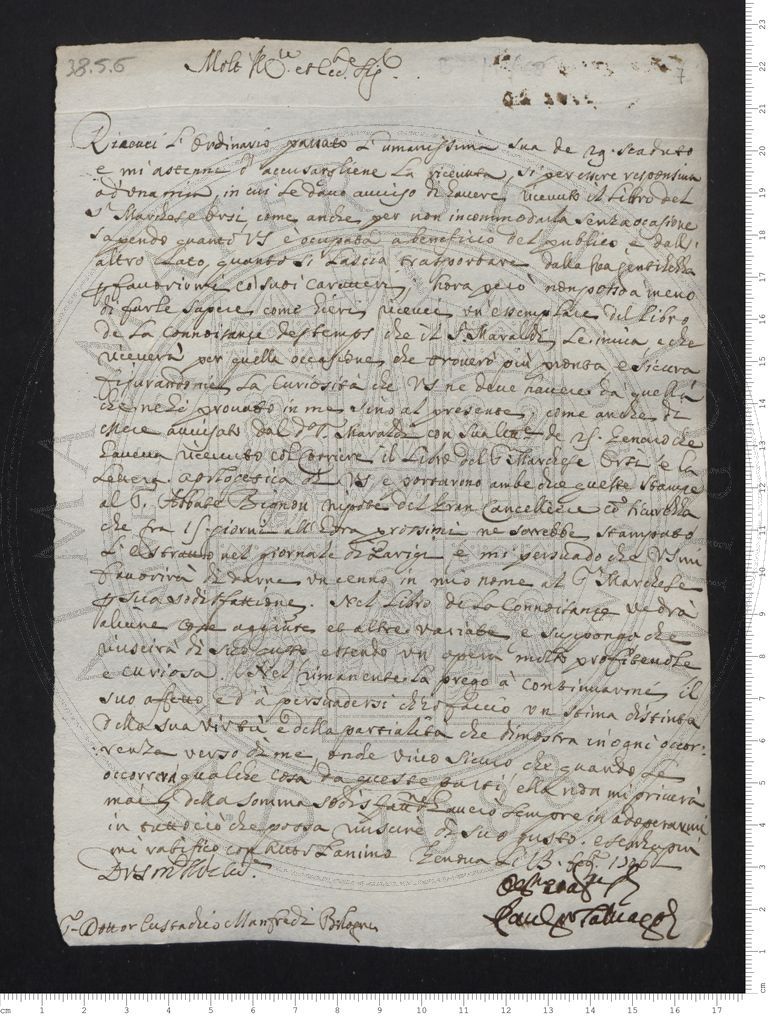 38.5.6
7
Molt Ill.re et Ecc.te Sig.
Riceuei l'Ordinario passato l'umanissima sua de 29. scaduto
e mi astenni d'accusargliene la riceuuta, si per essere responsiua
ad una mia, in cui le dauo auuiso di hauere riceuuto il Libro del
S.r Marchese Orsi, come anche per non incommodarla senza ocasione
sapendo quanto VS è ocupata a beneficio del publico, e dall'
altro lato, quanto si lascia trasportare dalla sua gentilezza
co suoi caratteri, hora però non posso a meno
di farle sapere come hieri riceuei un essemplare del Libro
de La Connoisance des temps che il S.r Maraldi Le inuia, e che
riceuerà per quella occasione che trouerò più pronta, e sicura
figurandomi la Curiosità che VS ne deue hauere da quella
che ne ho prouato in me sino al presente; come anche di
auuisato dal d.o S. Maraldi con sua de 25. Genaro che
haueua riceuuto col Corriere il Libro del S. Marchese Orsi e la
Lettera apologetica di VS e portarono ambe due queste stampe
al S. Abbate Bignon nipote del Gran Cancelliere co sicurezza
che fra 15 giorni all'hora prossimi ne sarebbe stampato
l'estratto nel giornale di Parigi e mi persuado che VS mi
fauorirà di darne un cenno in mio nome al S. Marchese
p sua sodisfattione. Nel Libro de La Connoisance vedrà
alcune cose aggiunte et altre variate e suppongo che
riuscirà di suo gusto essendo un opera molto profiteuole
e curiosa. Nel rimanente la prego à continuarmi il
suo affetto ed à persuadersi ch'io faccio un stima distinta
della sua virtù e della partialità che dimostra in ogni occor:
renza verso di me, onde viuo sicuro che quando le
occorrerà qualche cosa da queste parti, ella non mi priuerà
mai della somma sodis.ne hauerò sempre in adoperarmi
in tutto ciò che possa riuscire di suo gusto, e sempre più
mi ratifico con tutto l'animo Genoua li 13.
D VS molt Ill.re
S.r Dottor Eustachio Manfredi Bologna